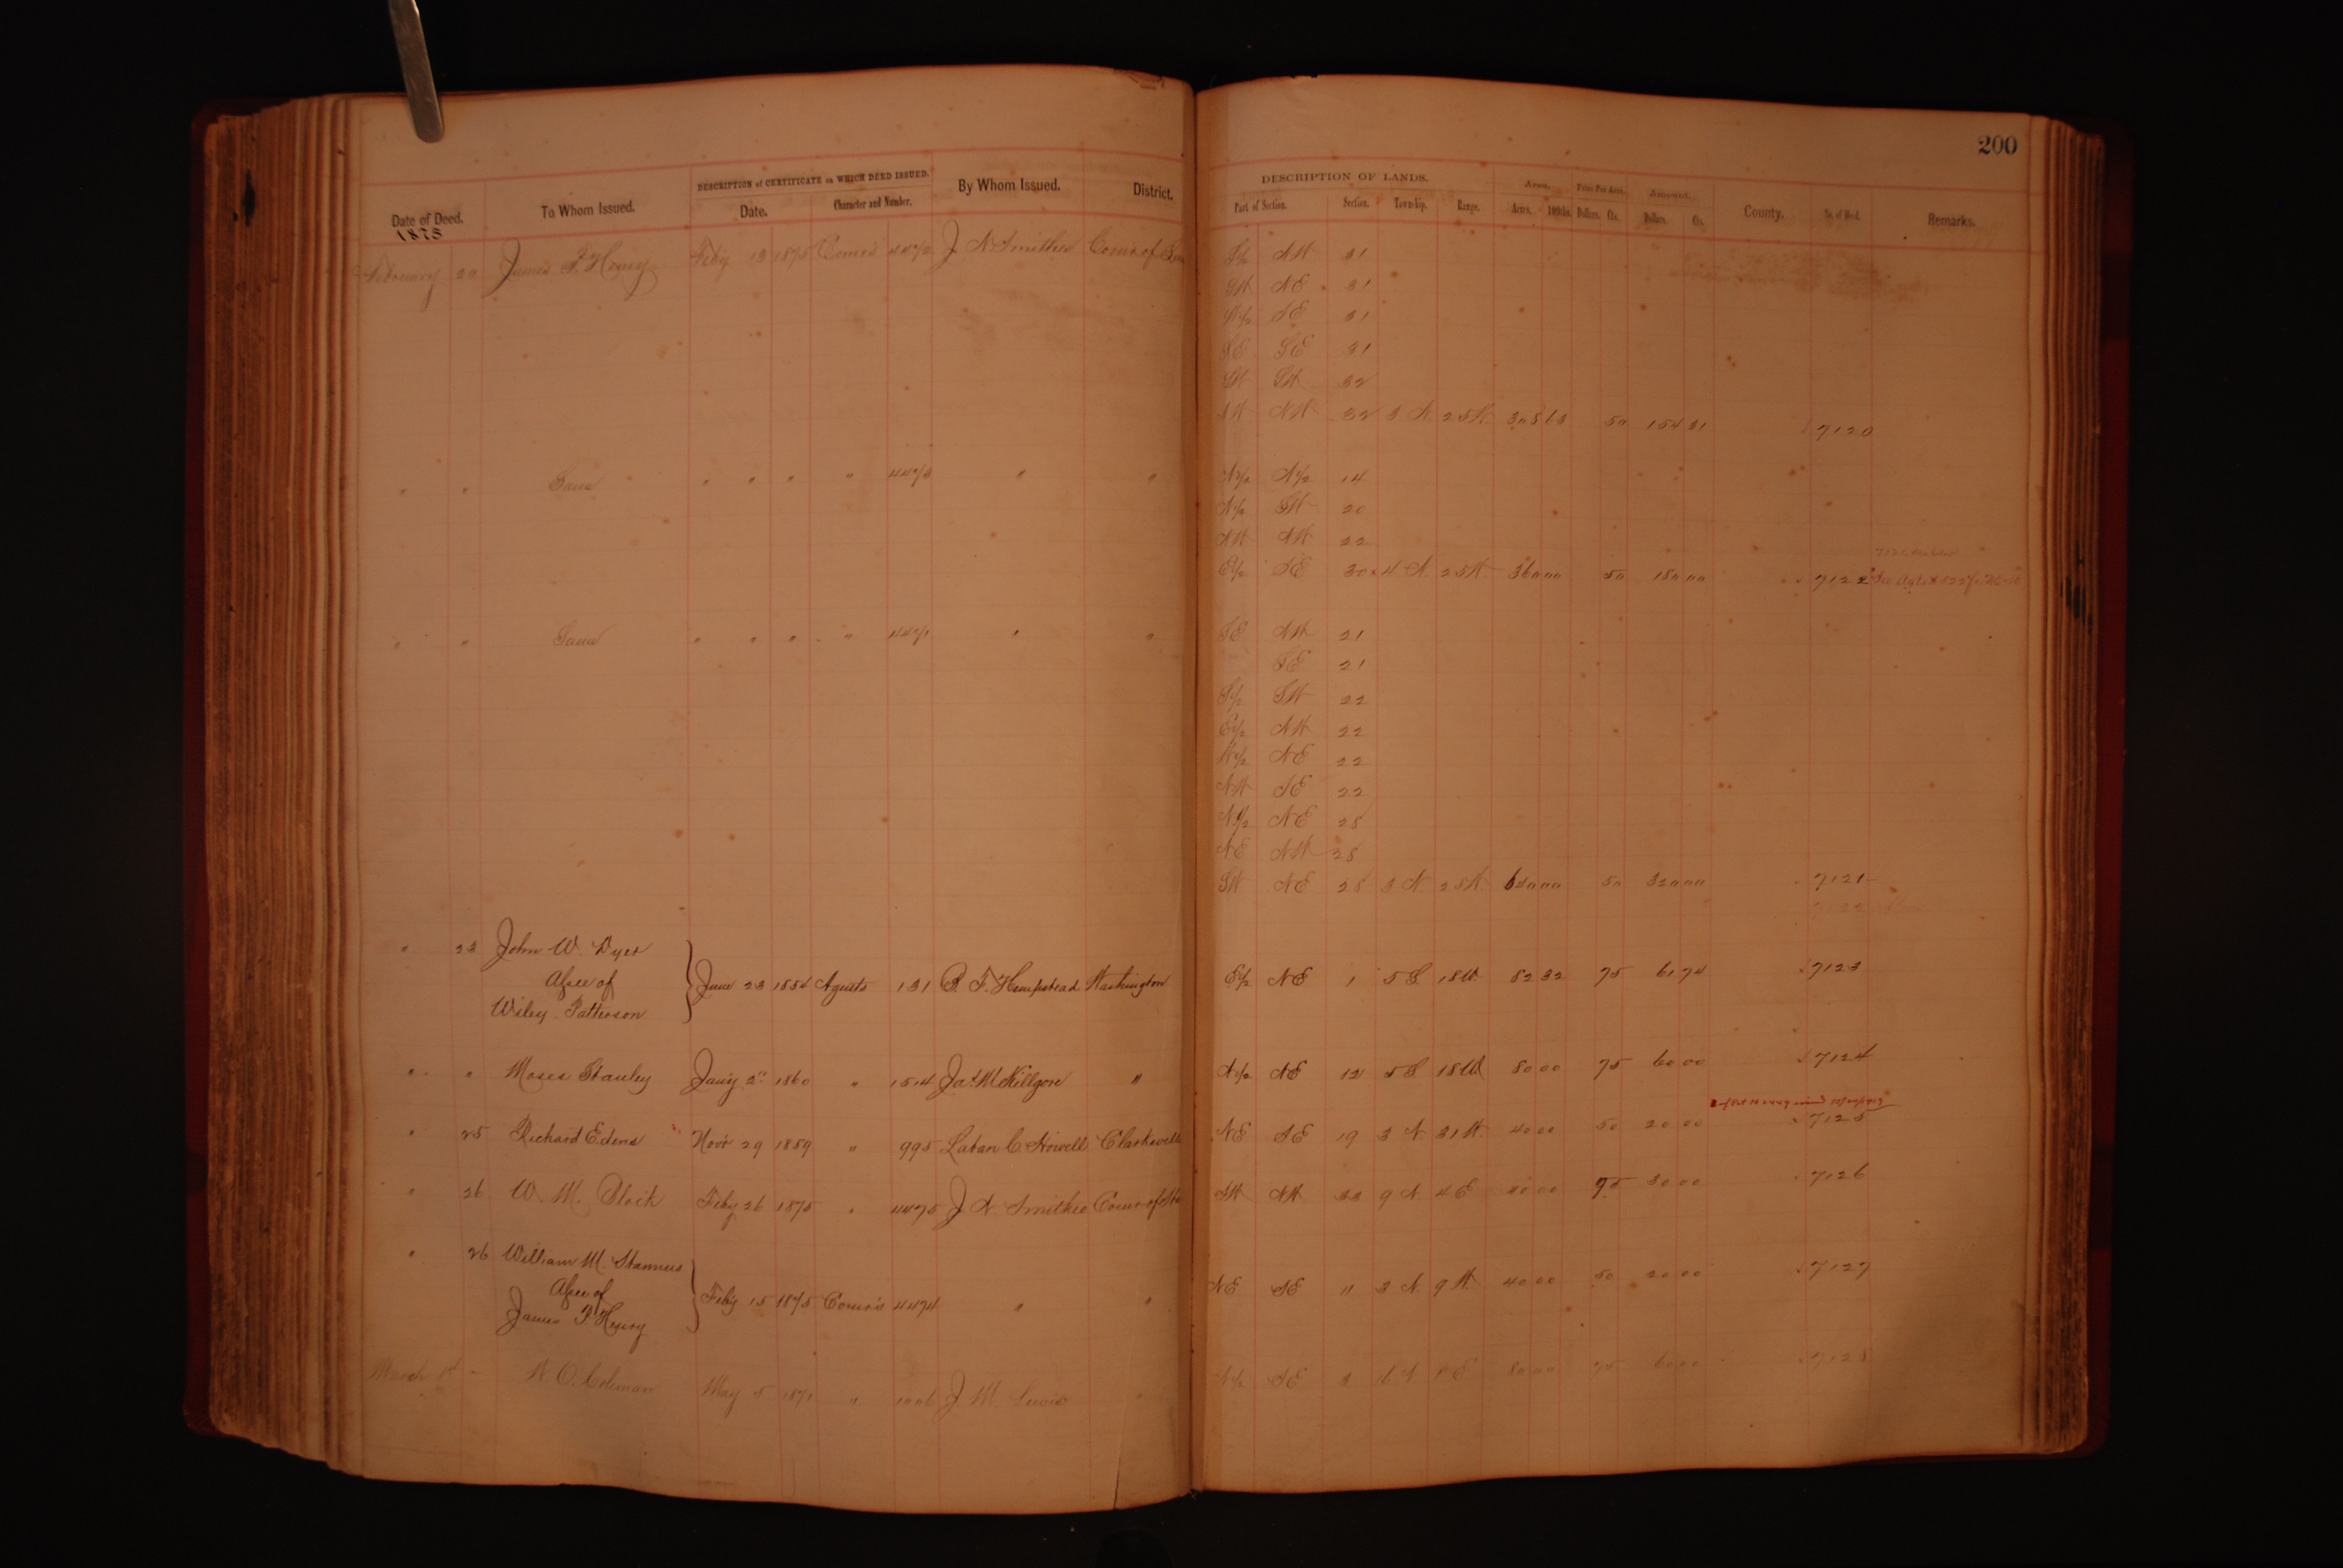 200
DESCRIPTION of CERTIFICATE on WHICH DEED ISSUED. DESCRIPTION OF LANDS. Area. Price Per Acre. Amount.
Date of Deed. To Whom Issued. Date. Character and Number. By Whom Issued. District. Part of Section. Section. Township. Range. Acres. 100ths. Dollars. Cts. Dollars. Cts. County. No. of Deed. Remarks.
1875
February 20 James P. Henry Feby 13 1875 Comr's 4472 J N Smithee Comr of S½ NW 31
SW NE 31
W½ SE 31
SE SE 31
SW SW 32
NW 32 3 N. 25W. 308 63 50 154 31 7120
" " Same " " " " 4473 " " N½ N½ 14
N½ SW 20
NW NW 22
E½ SE 30 4 N. 25W. 360 00 50 180 00 7122
" " Same " " " " 4471 " " SE NW 21
SE 21
S½ SW 22
E½ NW 22
W½ NE 22
NW SE 22
N½ NE 28
NE NW 28
SW NE 28 3 N. 25W. 640 00 50 320 00 7121
7122
" 23 John W. Dyer
Asee of
Wiley Patterson
June 23 1854 Agents 131 B. F. Hempstead Washington E½ NE 1 5 S 18W. 82 32 75 61 74 7123
" " Moses Stanley Jany 2" 1860 " 1514 Jas M Killgore " N½ NE 12 5 S 18W 80 00 75 60 00 7124
" 25 Richard Edens Novr 29 1859 " 995 Laban C. Howell Clarksville NE SE 19 3 N 31W. 40 00 50 20 00 7125
" 26 W. M. Block Feby 26 1875 " 4475 J N Smithee Comr of SW NW 33 9 N 4E 40 00 75 30 00 7126
" 26 William M. Stannus
Asee of
James P. Henry
Feby 15 1875 Comr's 4474 " " NE SE 11 3 N. 9 W. 40 00 50 20 00 7127
March 1st W. O. Coleman May 5 1871 " 1006 J. M. Lewis " N½ SE 3 6 N 8 E 80 00 75 60 00 7128